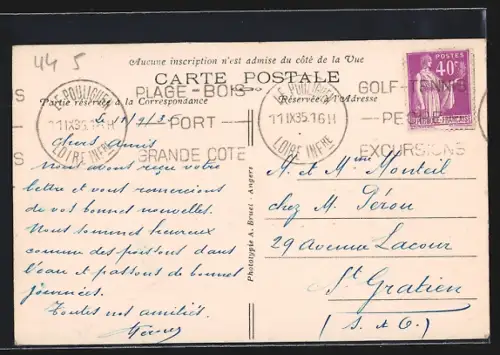 44 5
Aucune inscription n'est admise du côté de la Vue
CARTE POSTALE
Partie réservée à la Correspondance
Réservée à l'Adresse
LE POULIGUEN
11 IX 35 16H
LOIRE INFRE
PLAGE - BOIS
PORT
GRANDE COTE
LE POULIGUEN
11 IX 35 16H
LOIRE INFRE
GOLF - TENNIS
PECHE
EXCURSIONS
POSTES
40c
Le 11/9/35
Chers amis
Nous avons reçu votre
lettre et vous remercions
de vos bonnes nouvelles.
Nous sommes heureux
comme des poissons dans
l'eau et passons de bonnes
journées.
Toutes nos amitiés.
Phototypie A. Bruel - Angers
M. et Mme Monteil
chez M. Péron
29 avenue Lacour
St Gratien
(S. & O.)